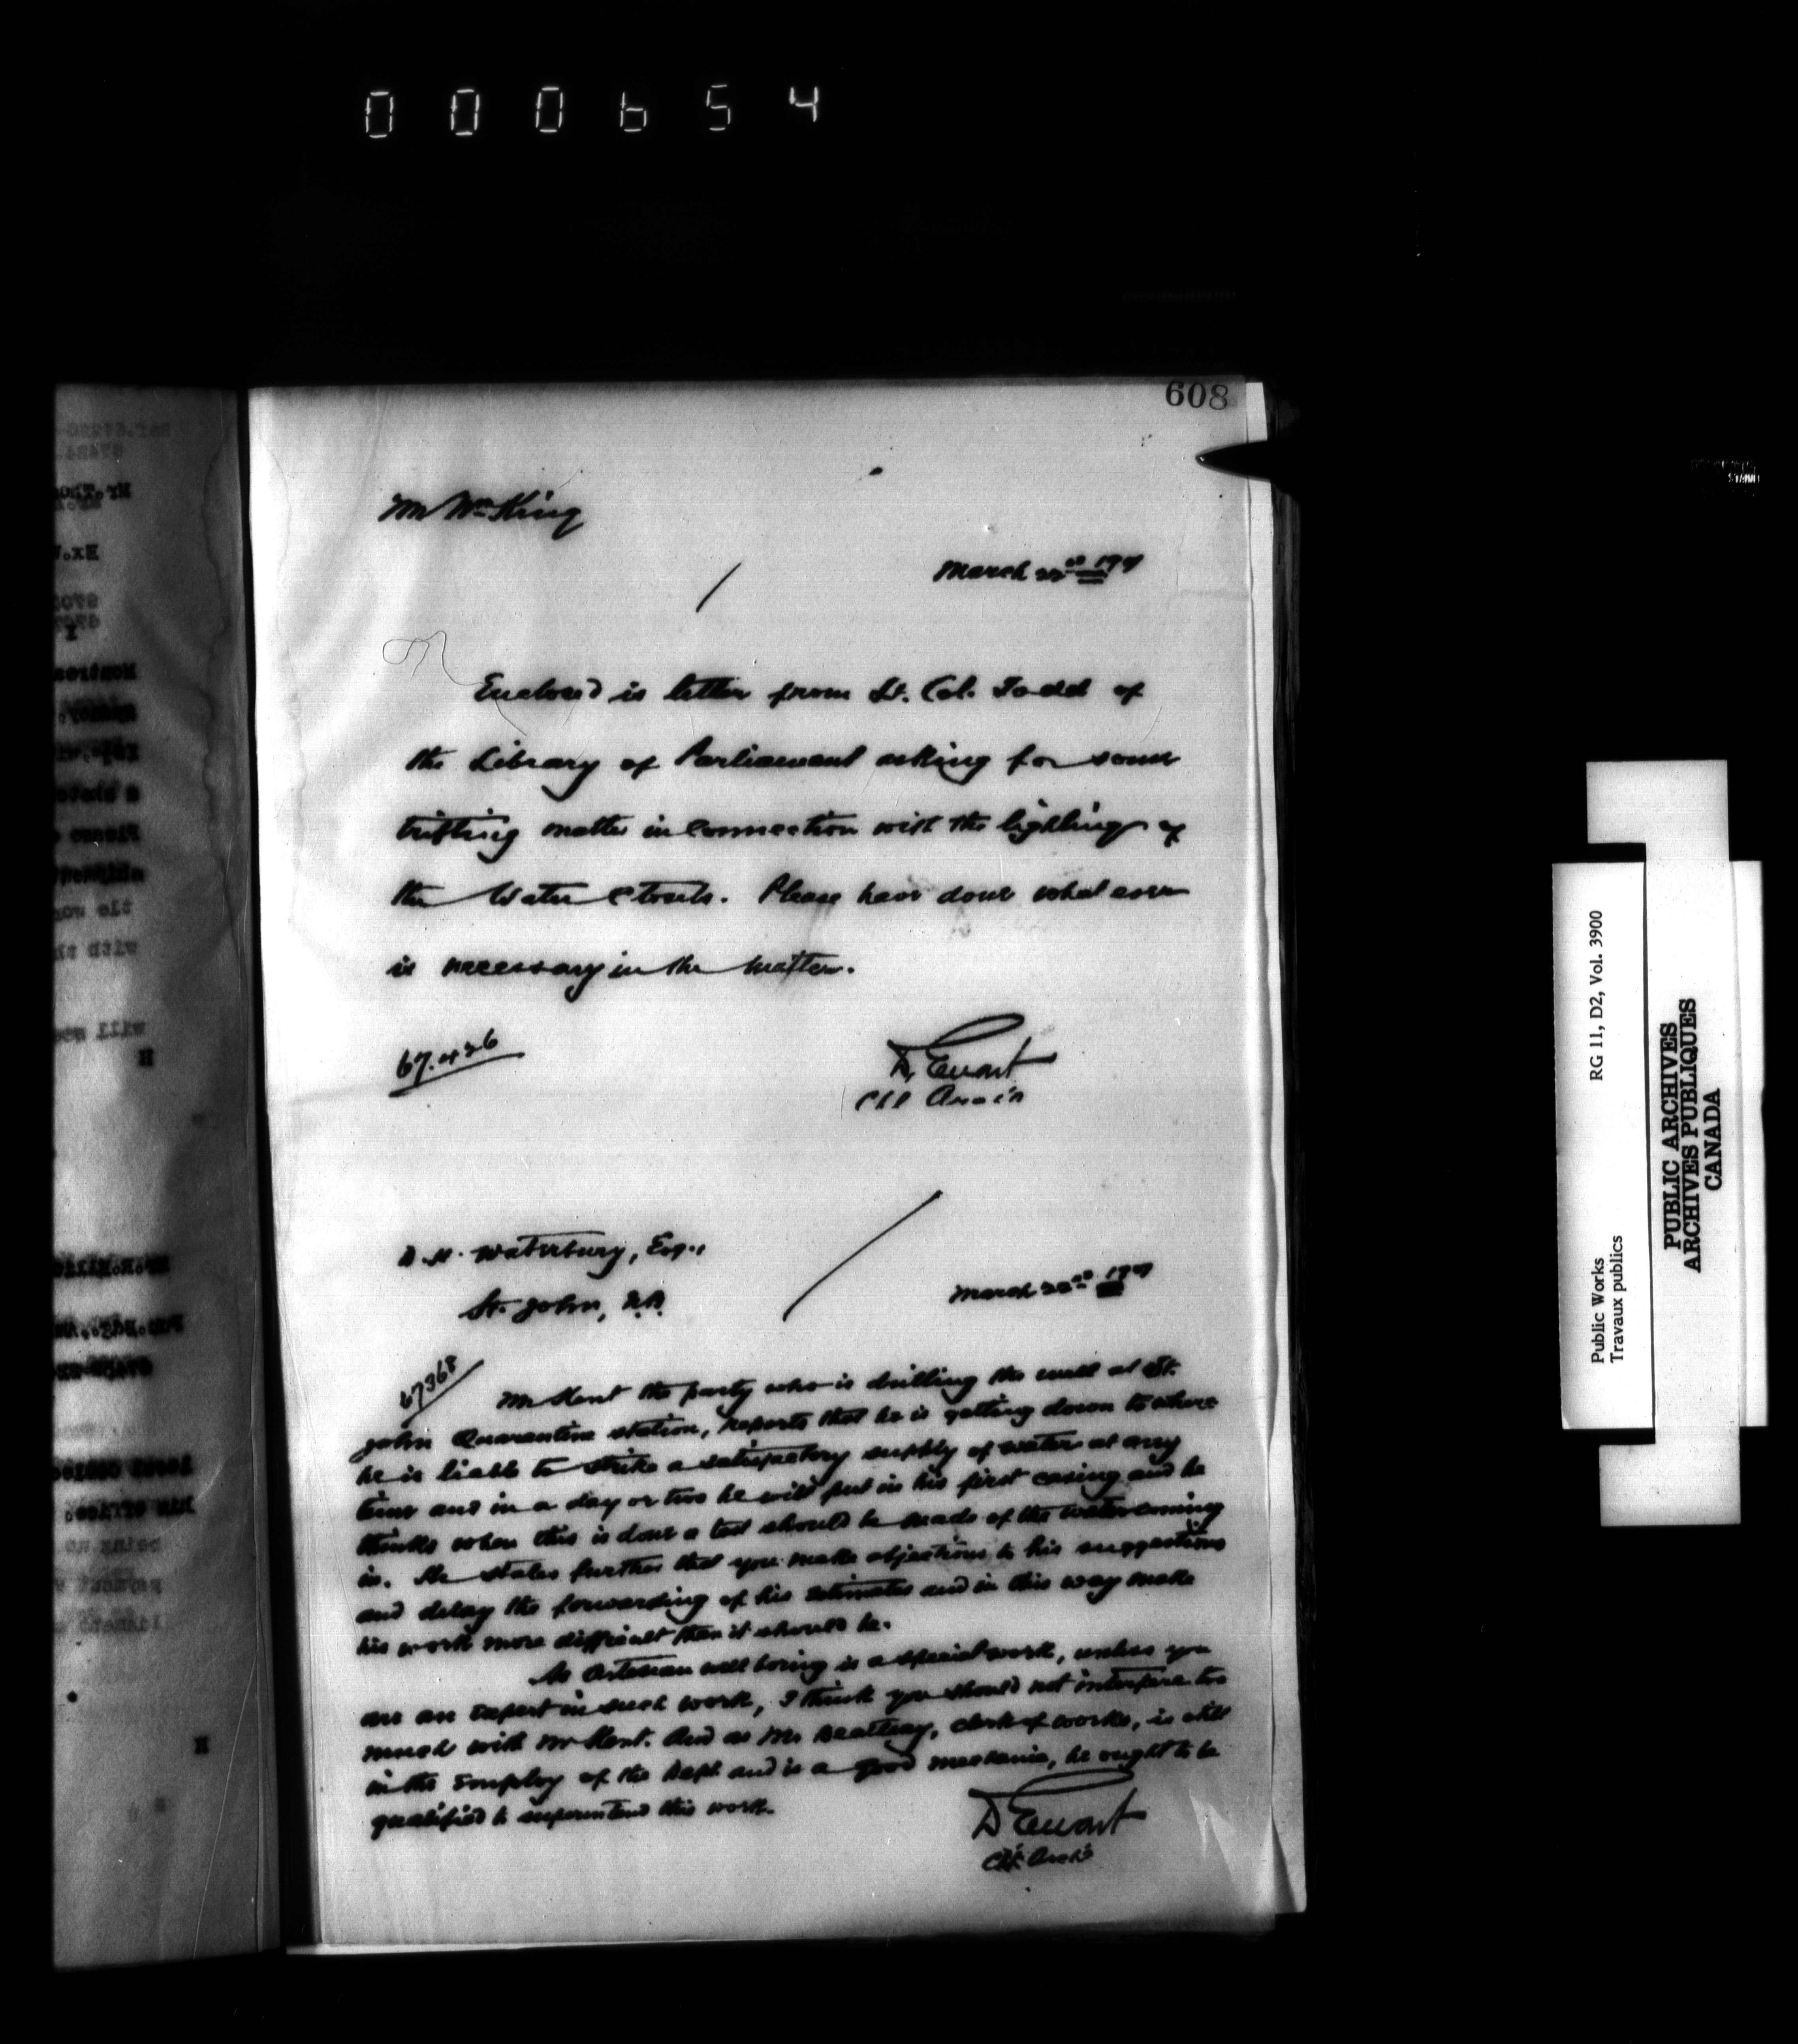 000654
608
Mr Wm King
March 22nd 197
Enclosed is letter from Lt. Col. Todd of
the Library of Parliament asking for some
trifling matter in connection with the lighting of
the Water Closets. Please have done what ever
is necessary in the matter.
67.426
D Ewart
Chf Arch't
D. H. Waterbury, Esq.,
St. John, N.B.
March 22nd 197
67368
Mr Kent the party who is drilling the well at St.
John Quarantine station, reports that he is getting down to where
he is liable to strike a satisfactory supply of water at any
time and in a day or two he will put in his first casing and he
thinks when this is done a test should be made of the water coming
in. He states further that you make objections to his suggestions
and delay the forwarding of his estimates and in this way make
his work more difficult than it should be.
As Artesian well boring is a special work, unless you
are an expert in such work, I think you should not interfere too
much with Mr Kent. And as Mr clerk of works, is still
in the employ of the Dept. and is a good mechanic, he ought to be
qualified to superintend this work.
D Ewart
Chf. Arch't
Public Works
Travaux publics
RG 11, D2, Vol. 3900
PUBLIC ARCHIVES
ARCHIVES PUBLIQUES
CANADA